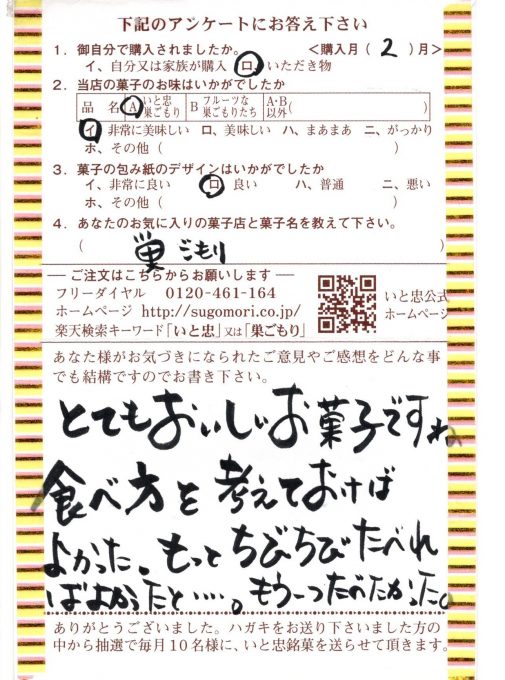 下記のアンケートにお答え下さい
1. 御自分で購入されましたか。 <購入月( 2 )月>
イ、自分又は家族が購入 ロ、いただき物
2. 当店の菓子のお味はいかがでしたか
品 名 A いと忠巣ごもり B フルーツな巣ごもりたち A・B以外( )
イ、非常に美味しい ロ、美味しい ハ、まあまあ ニ、がっかり
ホ、その他( )
3. 菓子の包み紙のデザインはいかがでしたか
イ、非常に良い ロ、良い ハ、普通 ニ、悪い
ホ、その他( )
4. あなたのお気に入りの菓子店と菓子名を教えて下さい。
( 巣ごもり )
ご注文はこちらからお願いします
フリーダイヤル 0120-461-164
ホームページ http://sugomori.co.jp/
楽天検索キーワード「いと忠」又は「巣ごもり」
いと忠公式
ホームページ
あなた様がお気づきになられたご意見やご感想をどんな事
でも結構ですのでお書き下さい。
とてもおいしいお菓子ですね
食べ方を考えておけば
よかった。もっとちびちびたべれ
ばよかったと・・・・。もう一つたべたかった。
ありがとうございました。ハガキをお送り下さいました方の
中から抽選で毎月10名様に、いと忠銘菓を送らせて頂きます。